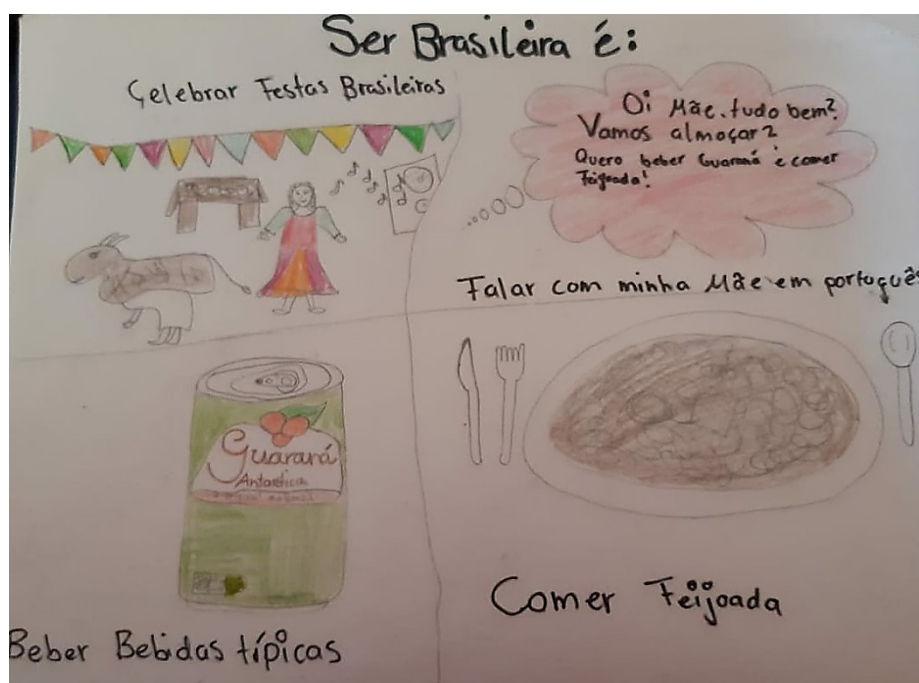 Ser Brasileira é:
Çelebrar Festas Brasileiras
Oi Mãe, tudo bem?
Vamos almoçar?
Quero beber Guaraná e comer
Feijoada!
Falar com minha Mãe em português
Guaraná
Antarctica
Beber Bebidas típicas
Comer Feijoada